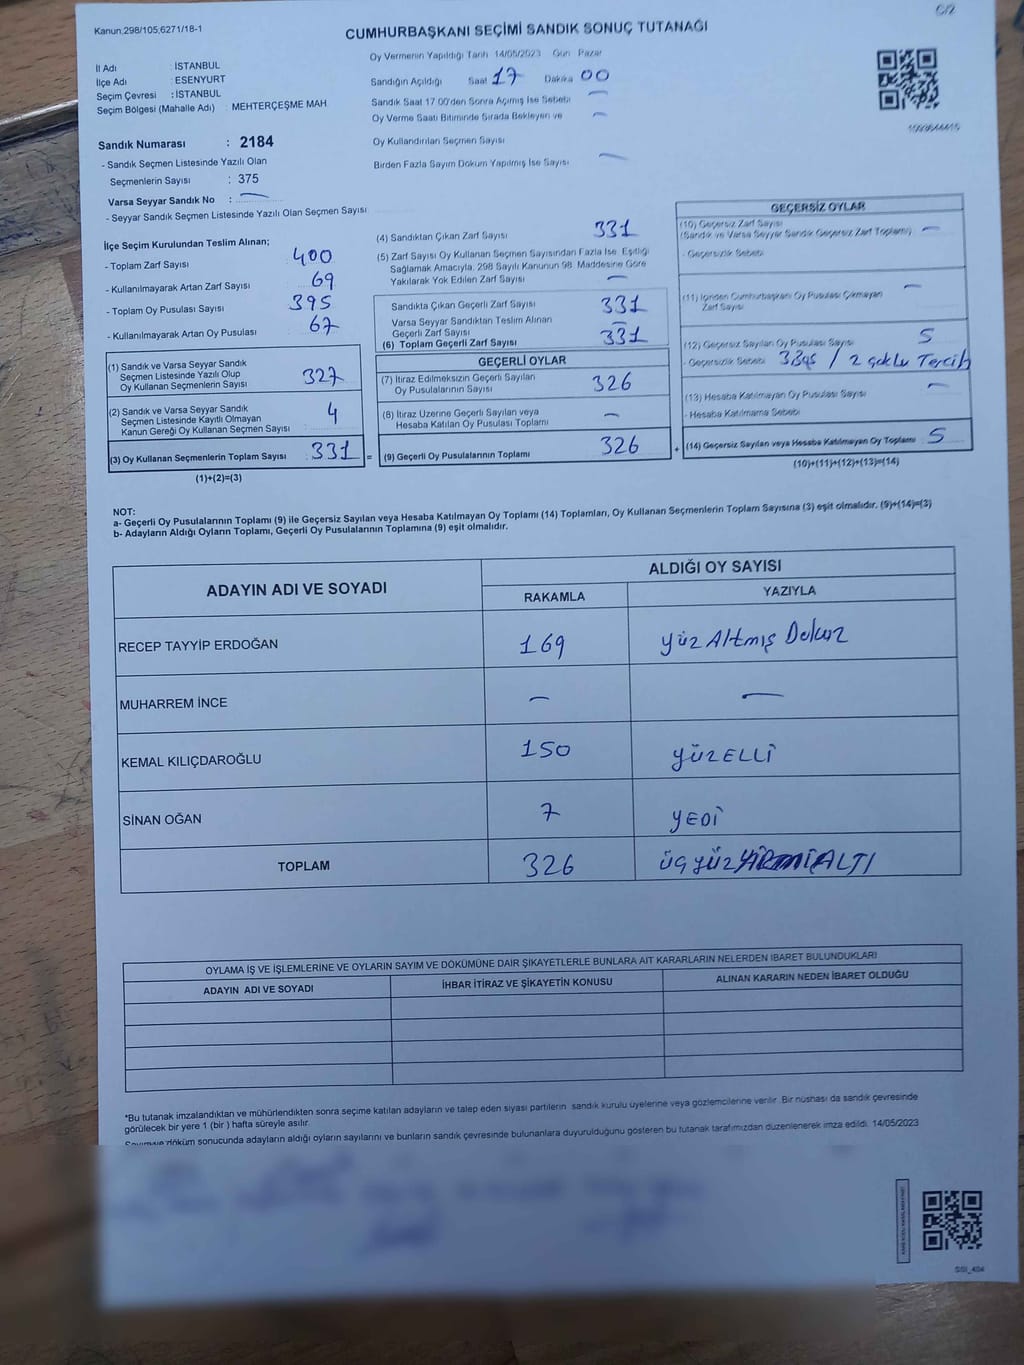 C/2
Kanun.298/105,6271/18-1
CUMHURBAŞKANI SEÇİMİ SANDIK SONUÇ TUTANAĞI
İl Adı : İSTANBUL
İlçe Adı : ESENYURT
Seçim Çevresi : İSTANBUL
Seçim Bölgesi (Mahalle Adı) : MEHTERÇEŞME MAH.
Oy Vermenin Yapıldığı Tarih 14/05/2023 Gün Pazar
Sandığın Açıldığı Saat 17 Dakika 00
Sandık Saat 17.00'den Sonra Açılmış İse Sebebi —
Oy Verme Saati Bitiminde Sırada Bekleyen ve —
Oy Kullandırılan Seçmen Sayısı
Birden Fazla Sayım Döküm Yapılmış İse Sayısı —
Sandık Numarası : 2184
- Sandık Seçmen Listesinde Yazılı Olan
Seçmenlerin Sayısı : 375
Varsa Seyyar Sandık No : —
- Seyyar Sandık Seçmen Listesinde Yazılı Olan Seçmen Sayısı
İlçe Seçim Kurulundan Teslim Alınan;
- Toplam Zarf Sayısı 400
- Kullanılmayarak Artan Zarf Sayısı 69
- Toplam Oy Pusulası Sayısı 395
- Kullanılmayarak Artan Oy Pusulası 67
(1) Sandık ve Varsa Seyyar Sandık
Seçmen Listesinde Yazılı Olup
Oy Kullanan Seçmenlerin Sayısı 327
(2) Sandık ve Varsa Seyyar Sandık
Seçmen Listesinde Kayıtlı Olmayan
Kanun Gereği Oy Kullanan Seçmen Sayısı 4
(3) Oy Kullanan Seçmenlerin Toplam Sayısı 331 =
(1)+(2)=(3)
(4) Sandıktan Çıkan Zarf Sayısı 331
(5) Zarf Sayısı Oy Kullanan Seçmen Sayısından Fazla İse, Eşitliği
Sağlamak Amacıyla, 298 Sayılı Kanunun 98. Maddesine Göre
Yakılarak Yok Edilen Zarf Sayısı —
Sandıkta Çıkan Geçerli Zarf Sayısı 331
Varsa Seyyar Sandıktan Teslim Alınan
Geçerli Zarf Sayısı —
(6) Toplam Geçerli Zarf Sayısı 331
GEÇERLİ OYLAR
(7) İtiraz Edilmeksizin Geçerli Sayılan
Oy Pusulalarının Sayısı 326
(8) İtiraz Üzerine Geçerli Sayılan veya
Hesaba Katılan Oy Pusulası Toplamı —
(9) Geçerli Oy Pusulalarının Toplamı 326 +
GEÇERSİZ OYLAR
(10) Geçersiz Zarf Sayısı
(Sandık ve Varsa Seyyar Sandık Geçersiz Zarf Toplamı) —
- Geçersizlik Sebebi
(11) İçinden Cumhurbaşkanı Oy Pusulası Çıkmayan —
Zarf Sayısı
(12) Geçersiz Sayılan Oy Pusulası Sayısı 5
- Geçersizlik Sebebi / 2 çoklu Tercih
(13) Hesaba Katılmayan Oy Pusulası Sayısı —
- Hesaba Katılmama Sebebi
(14) Geçersiz Sayılan veya Hesaba Katılmayan Oy Toplamı 5
(10)+(11)+(12)+(13)=(14)
NOT:
a- Geçerli Oy Pusulalarının Toplamı (9) ile Geçersiz Sayılan veya Hesaba Katılmayan Oy Toplamı (14) Toplamları, Oy Kullanan Seçmenlerin Toplam Sayısına (3) eşit olmalıdır. (9)+(14)=(3)
b- Adayların Aldığı Oyların Toplamı, Geçerli Oy Pusulalarının Toplamına (9) eşit olmalıdır.
ADAYIN ADI VE SOYADI ALDIĞI OY SAYISI
RAKAMLA YAZIYLA
RECEP TAYYİP ERDOĞAN 169 yüz Altmış Dokuz
MUHARREM İNCE — —
KEMAL KILIÇDAROĞLU 150 YÜZELLİ
SİNAN OĞAN 7 YEDİ
TOPLAM 326 ÜÇ YÜZ YİRMİ ALTI
OYLAMA İŞ VE İŞLEMLERİNE VE OYLARIN SAYIM VE DÖKÜMÜNE DAİR ŞİKAYETLERLE BUNLARA AİT KARARLARIN NELERDEN İBARET BULUNDUKLARI
ADAYIN ADI VE SOYADI İHBAR İTİRAZ VE ŞİKAYETİN KONUSU ALINAN KARARIN NEDEN İBARET OLDUĞU
*Bu tutanak imzalandıktan ve mühürlendikten sonra seçime katılan adayların ve talep eden siyasi partilerin sandık kurulu üyelerine veya gözlemcilerine verilir. Bir nüshası da sandık çevresinde
görülecek bir yere 1 (bir) hafta süreyle asılır.
döküm sonucunda adayların aldığı oyların sayılarını ve bunların sandık çevresinde bulunanlara duyurulduğunu gösteren bu tutanak tarafımızdan düzenlenerek imza edildi. 14/05/2023